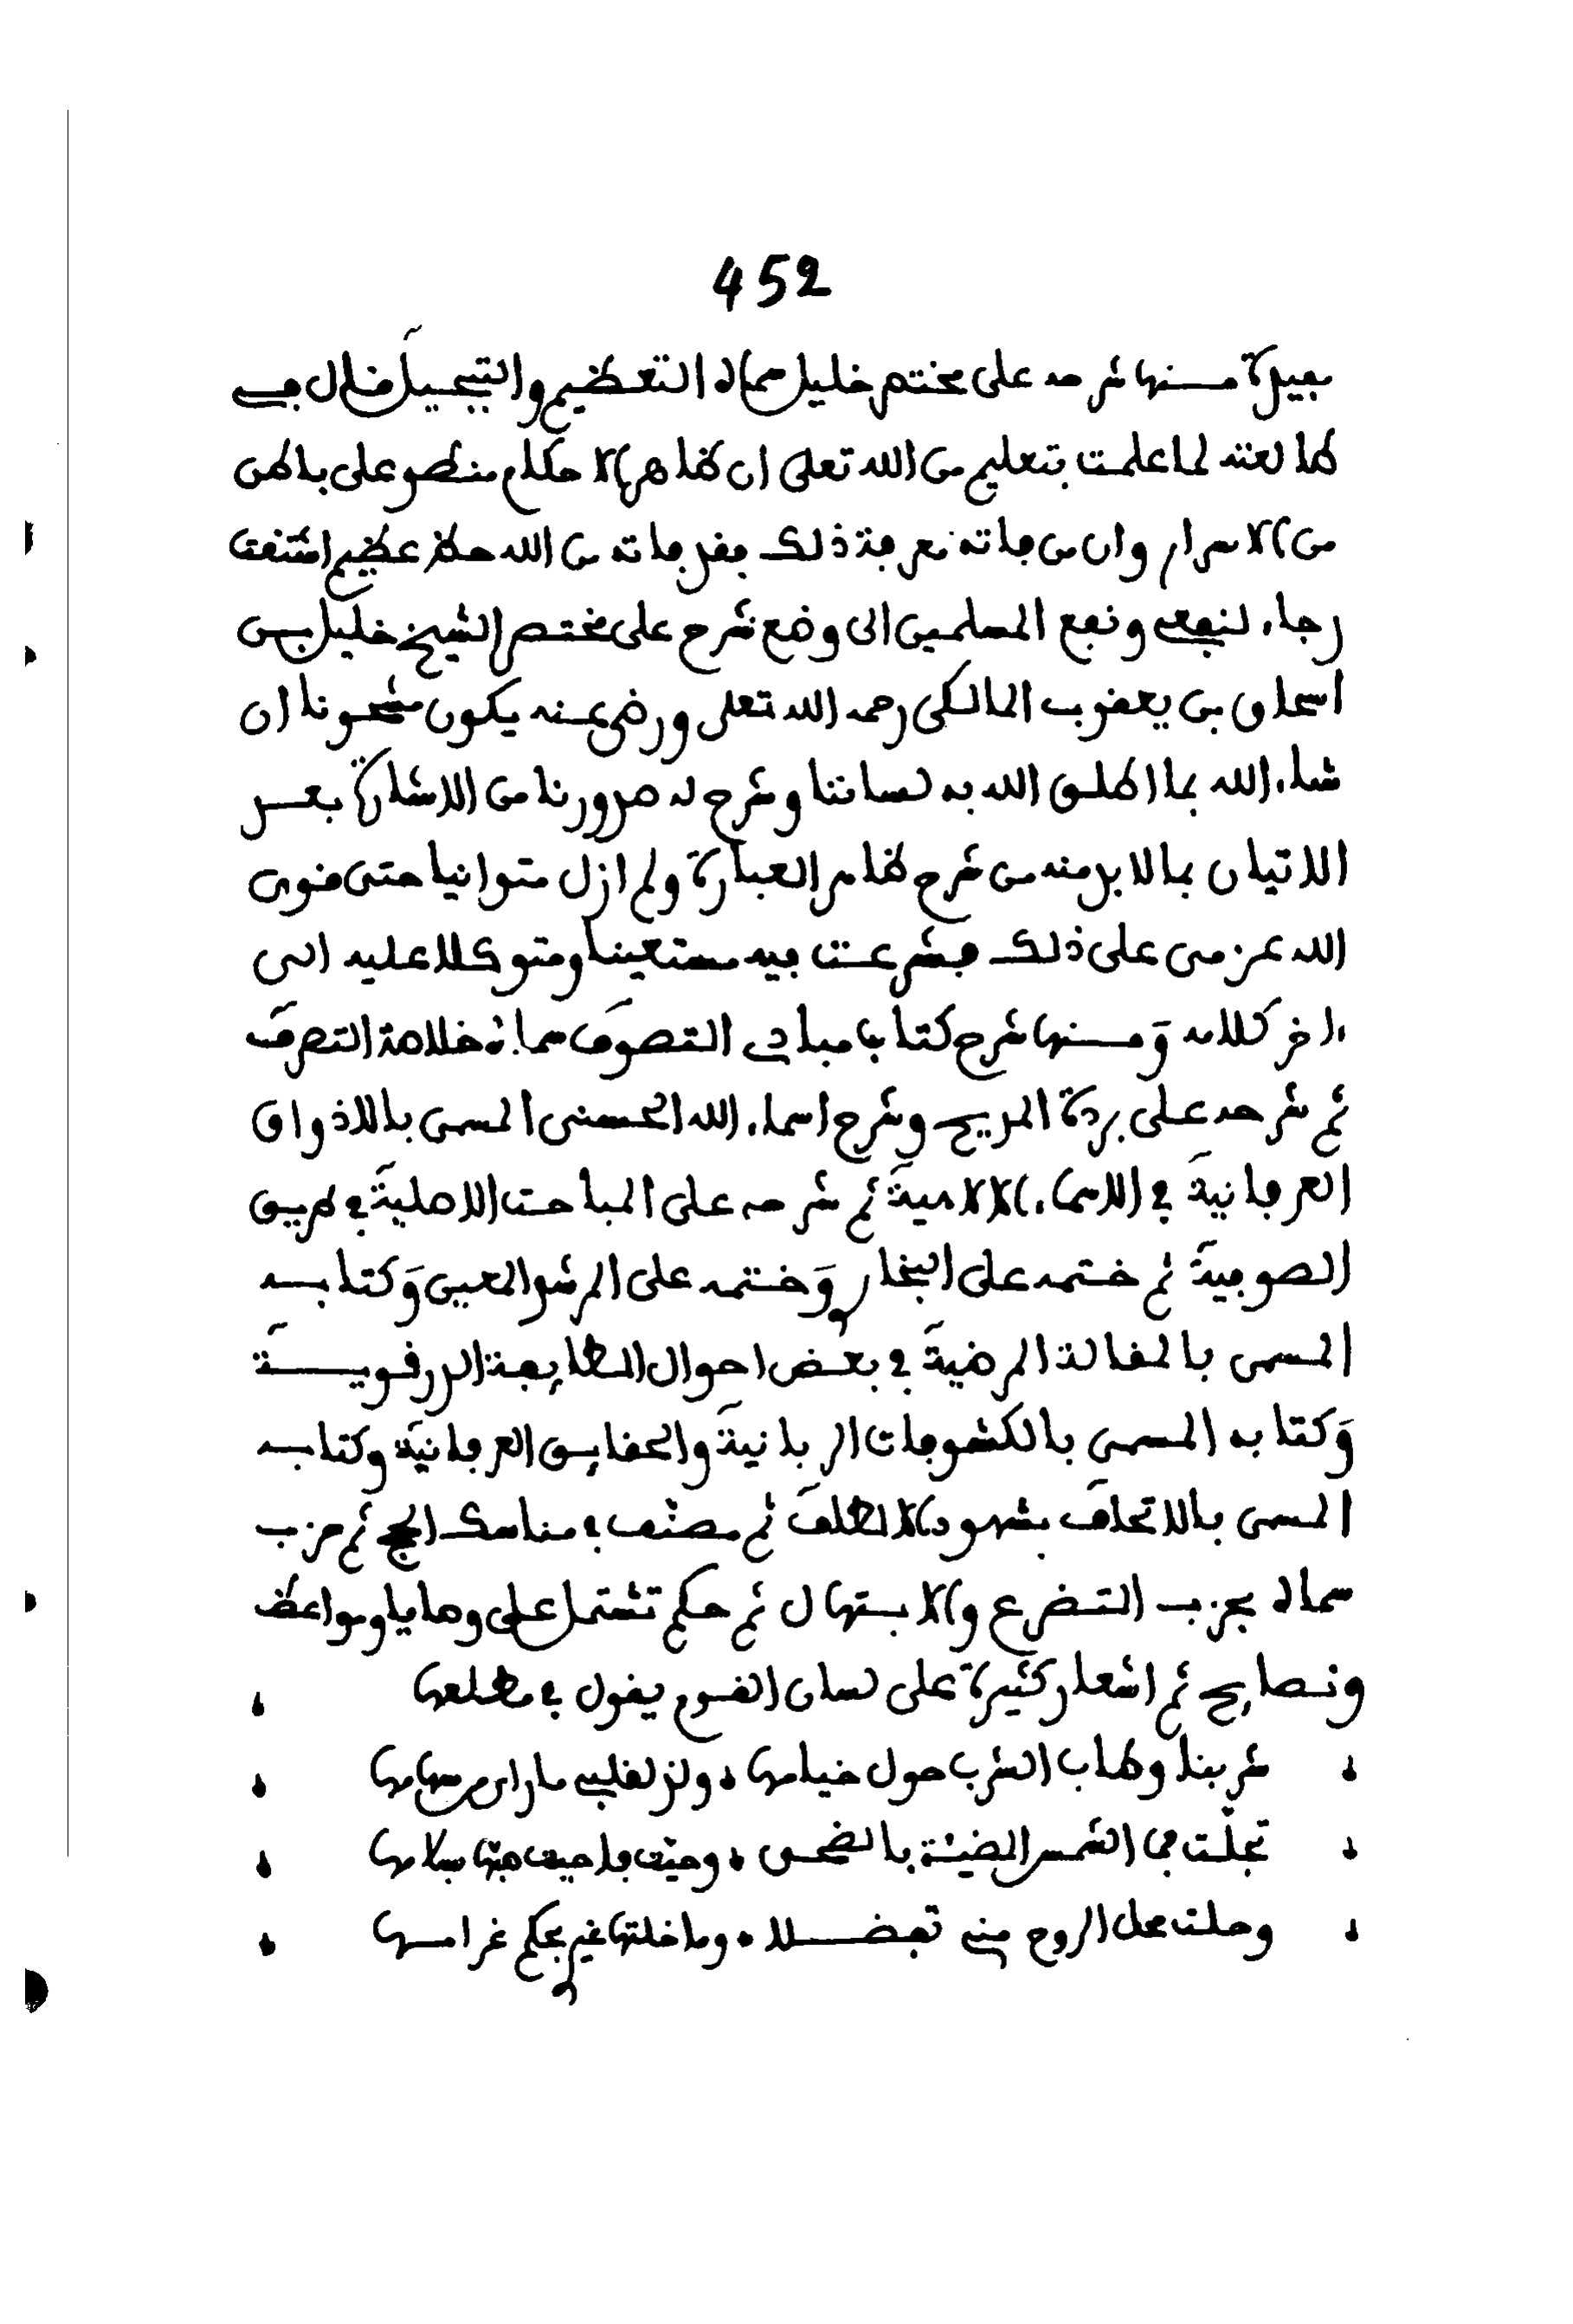 452
مفيدة منها شرحه على مختصر خليل سماه التعظيم والتبجيل قال في
طالعته لما علمت بتعليم من الله تعلى ان ظاهر الاحكام منطو على باطن
من الاسرار وان من فاته معرفة ذلك فقد فاته من الله حظ عظيم اشتقت
رجاء لنفعي ونفع المسلمين الى وضع شرح على مختصر الشيخ خليل بن
اسحاق بن يعقوب المالكي رحمه الله تعلى ورضي عنه يكون مشحونا ان
شاء الله بما اطلق الله به لساننا وشرح له صدورنا من الاشارة بعد
الاتيان بما لا بد منه من شرح ظاهر العبارة ولم ازل متوانيا حتى قوى
الله عزمي على ذلك فشرعت فيه مستعينا ومتوكلا عليه الى
ءاخر كلامه ومنها شرح كتاب مبادى التصوف سماه خلاصة التصرف
ثم شرحه على بردة المديح وشرح اسماء الله الحسنى المسمى بالاذواق
العرفانية في الاسماء الالاهية ثم شرحه على المباحث الاصلية في طريق
الصوفية ثم ختمه على البخاري وختمه على المرشد المعين وكتابه
المسمى بالمقالة المرضية في بعض احوال الطايفة الدرقوية
وكتابه المسمى بالكشوفات الربانية والحقايق العرفانية وكتابه
المسمى بالاتحاف بشهود الالطاف ثم مصنف في مناسك الحج ثم حزب
سماه بحزب التضرع والابتهال ثم حكم تشتمل على وصايا ومواعظ
ونصايح ثم اشعار كثيرة على لسان القوم يقول في مطلعها
شربنا وطاب الشرب حول خيامها ولذ لقلبي ما راى من سهامها
تجلت في الشمس المضيئة بالضحى وحيت فاحيت ميتها بسلامها
وحلت محل الروح مني تفضلا وما خلتها غير بحكم غرامها